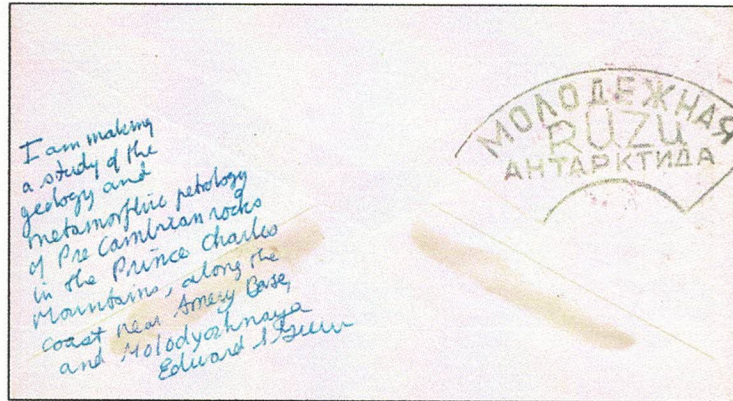 I am making
a study of the
geology and
metamorphic petrology
of Pre Cambrian rocks
in the Prince Charles
Mountains, along the
coast near Amery Base,
and Molodyozhnaya
Edward S
МОЛОДЕЖНАЯ
RUZU
АНТАРКТИДА